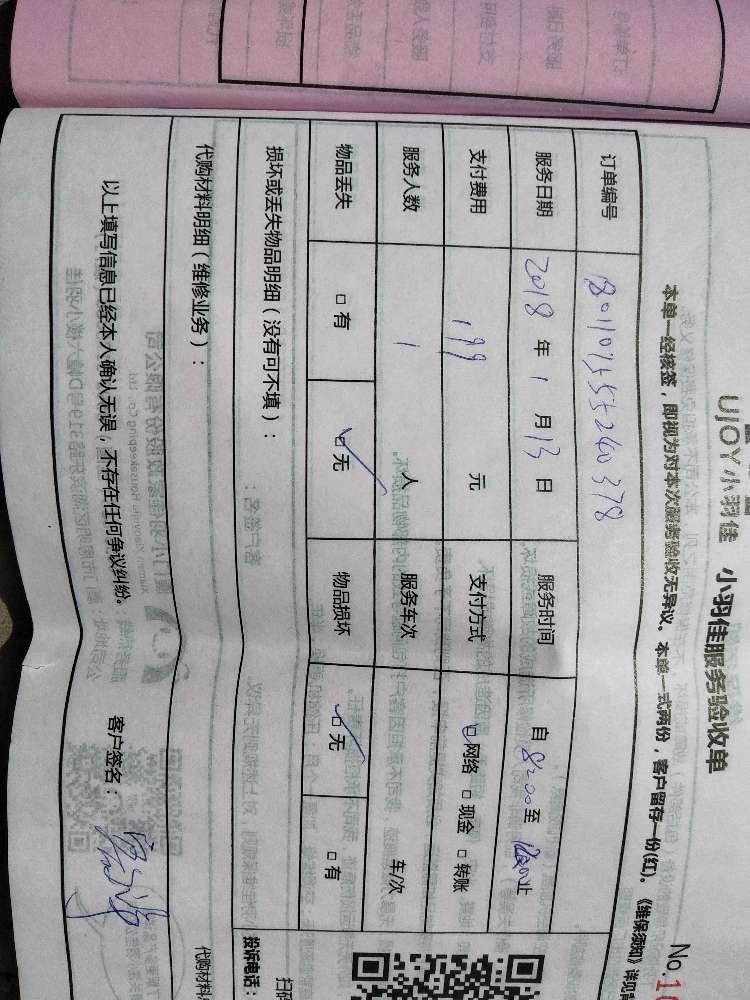 UJOY小羽佳 小羽佳服务验收单
No.1
本单一经接签，即视为对本次服务验收无异议。本单一式两份，客户留存一份(红)。《维保须知》详见
订单编号
服务日期 2018 年 1 月 13 日 服务时间 自 8:00 至 12:00 止
支付费用 199 元 支付方式 ☑网络 □现金 □转账
服务人数 1 人 服务车次 车/次
物品丢失 □有 ☑无 物品损坏 ☑无 □有
损坏或丢失物品明细（没有可不填）：
投诉电话：
扫码
代购材料明细（维修业务）：
代购材料
以上填写信息已经本人确认无误，不存在任何争议纠纷。 客户签名：